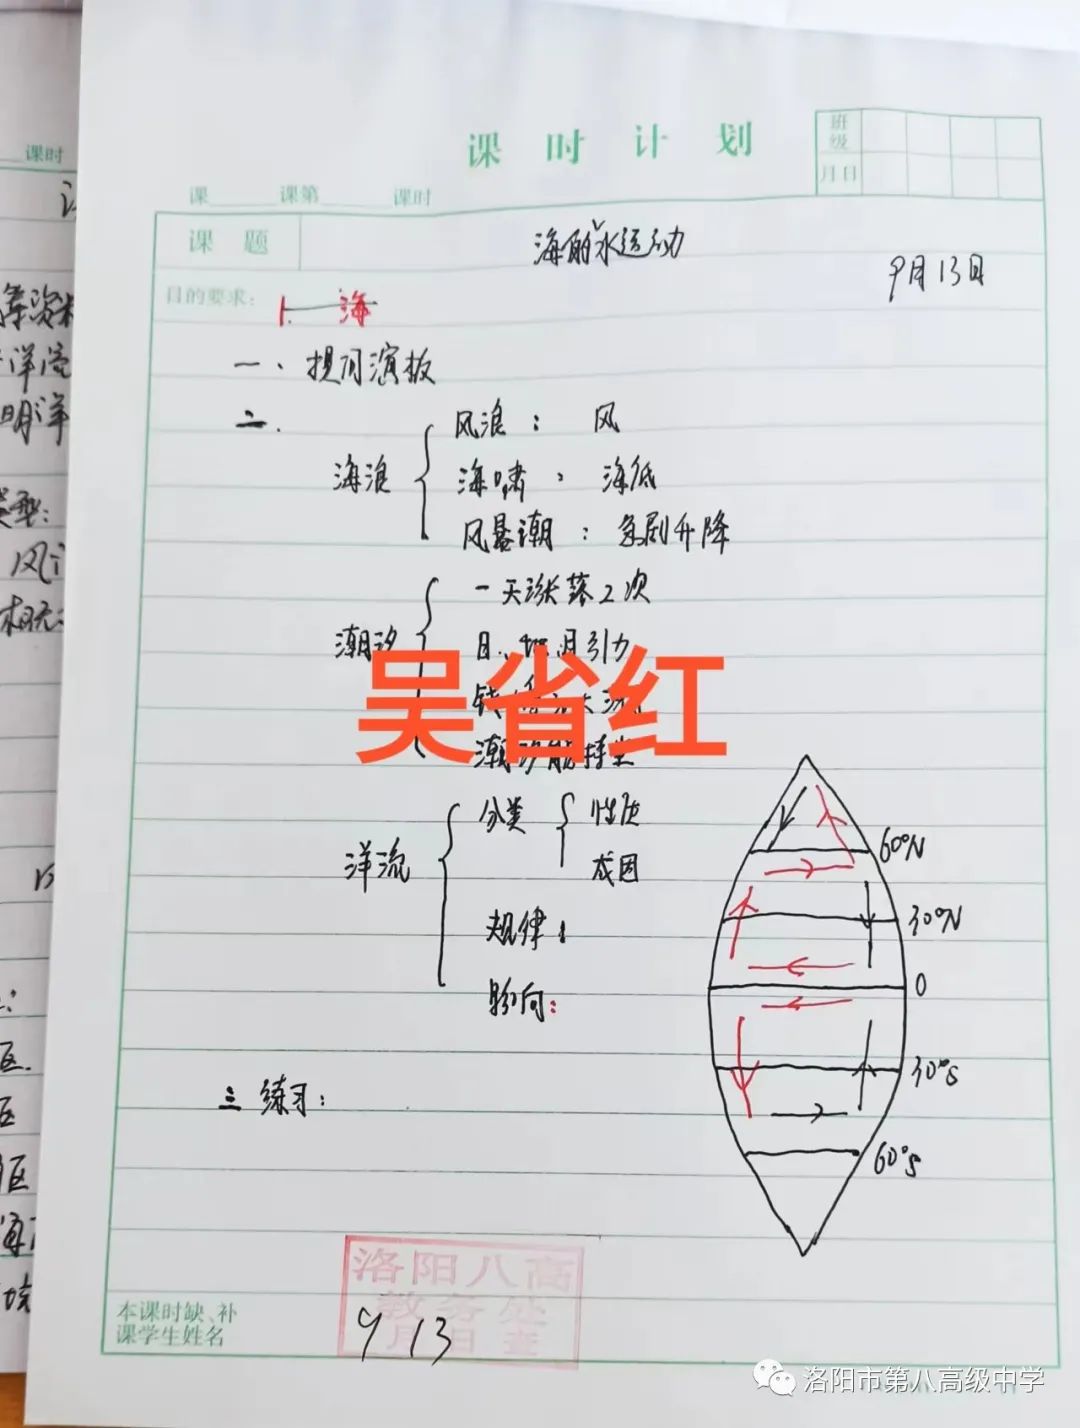 课时计划
班级
月日
课 课第 课时
课题
海的水运动
9月13日
目的要求:
1. 海
一、提问演板
二.
海浪
风浪: 风
海啸: 海底
风暴潮: 急剧升降
潮汐
一天涨落2次
日、地月引力
潮汐能
吴省红
洋流
分类
性质
成因
规律:
影响:
60°N
30°N
0
30°S
60°S
三 练习:
本课时缺、补
课学生姓名
洛阳八高
教务处
月 日查
9 13
洛阳市第八高级中学
课时
洋流
明洋
类型:
风
区.
区